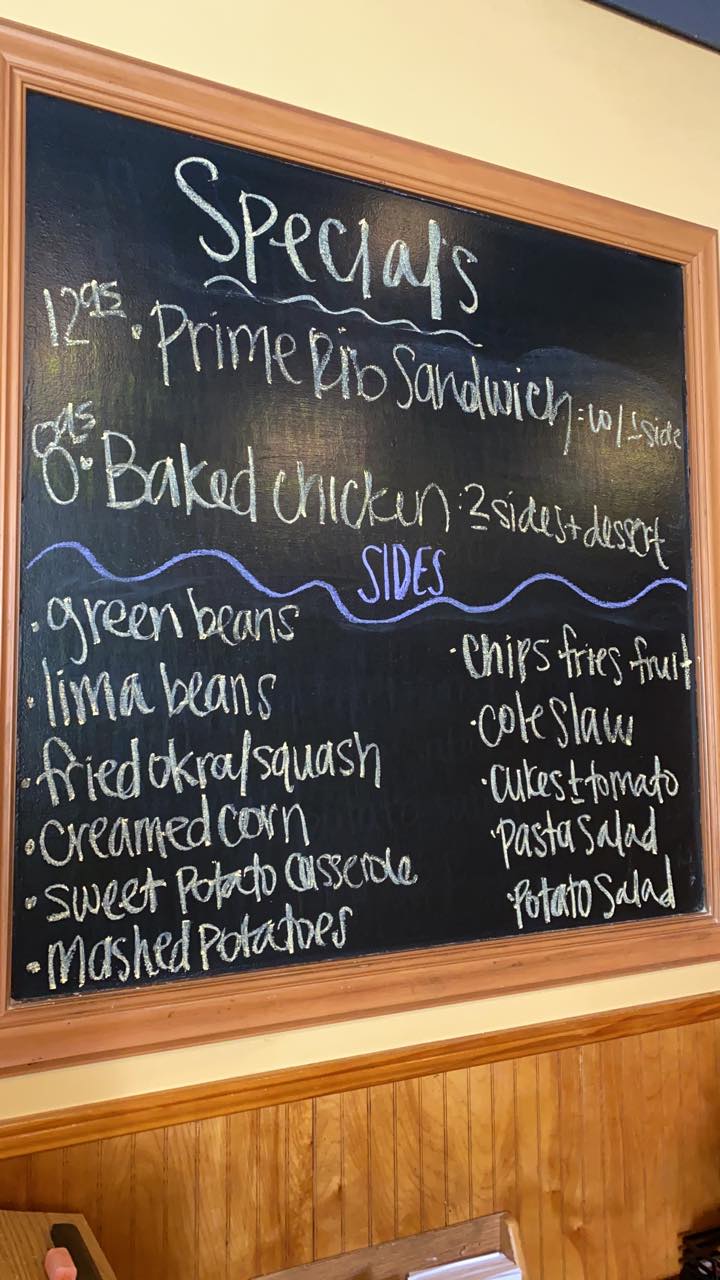 Specials
12.95 • Prime Rib Sandwich : w/ 1 side
• Baked chicken : 2 sides + dessert
SIDES
• green beans
• lima beans
• fried okra/squash
• creamed corn
• sweet potato casserole
• Mashed potatoes
• chips fries fruit
• coleslaw
• cukes + tomato
• Pasta Salad
• Potato Salad